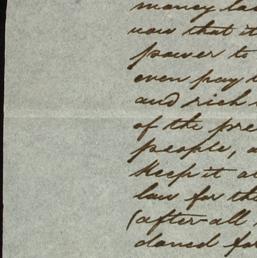 money la
now that it
power to
even pay
and rich
of the pre
people, a
keep it a
law for the
(after all
doned for